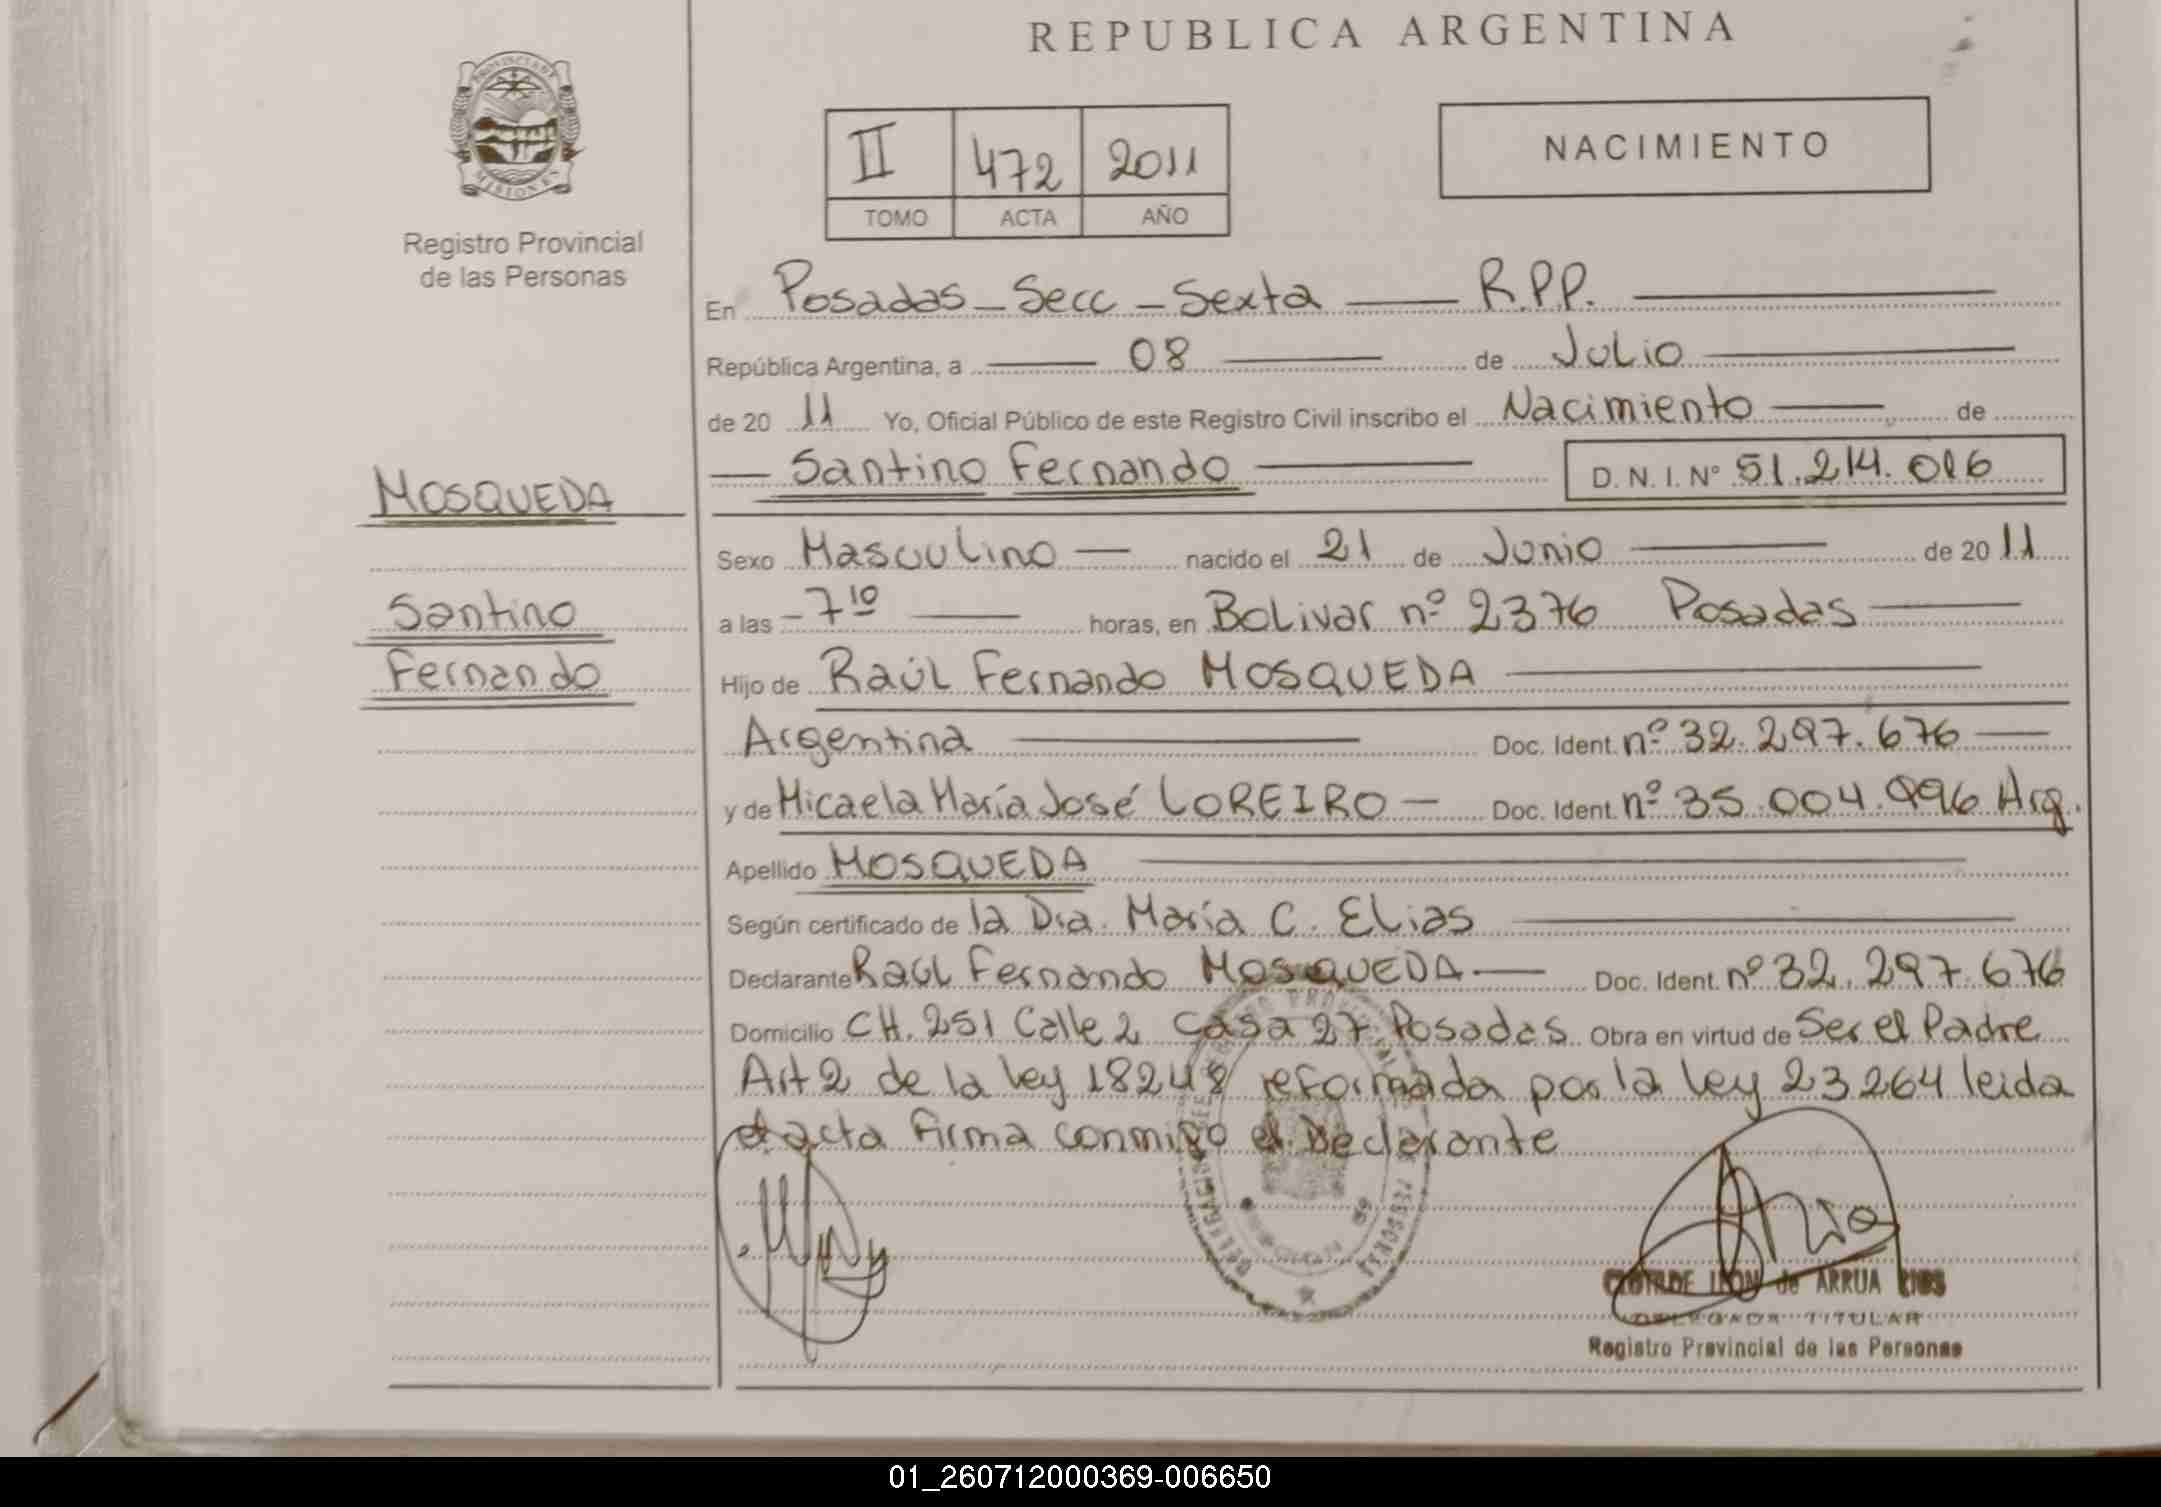 REPUBLICA ARGENTINA
PROVINCIA DE
MISIONES
Registro Provincial
de las Personas
II 472 2011
TOMO ACTA AÑO
NACIMIENTO
En Posadas - Secc - Sexta — R.P.P. —
República Argentina, a — 08 — de Julio —
de 20 11 Yo, Oficial Público de este Registro Civil inscribo el Nacimiento — de
— Santino Fernando — D. N. I. Nº 51.214.016
MOSQUEDA
Sexo Masculino — nacido el 21 de Junio — de 20 11
Santino
a las - 7 10 — horas, en Bolivar nº 2376 Posadas —
Fernando
Hijo de Raúl Fernando MOSQUEDA —
Argentina — Doc. Ident. nº 32.297.676 —
y de Micaela María José LOREIRO — Doc. Ident. nº 35.004.996 Arg.
Apellido MOSQUEDA —
Según certificado de la Dra. María C. Elias —
Declarante Raúl Fernando MOSQUEDA — Doc. Ident. nº 32.297.676
Domicilio CH. 251 Calle 2 Casa 27 Posadas. Obra en virtud de Ser el Padre
Art 2 de la ley 18248 reformada por la ley 23264 leida
el acta firma conmigo el Declarante
de ARRUA RIOS
DELEGADA TITULAR
Registro Provincial de las Personas
01_260712000369-006650